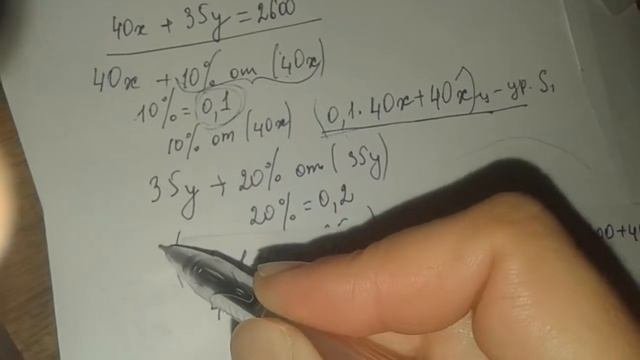 40x + 35y = 2600
40x + 10% от (40x)
10% = 0,1
10% от (40x) (0,1 · 40x + 40x) ц - ур. S₁
35y + 20% от (35y)
20% = 0,2